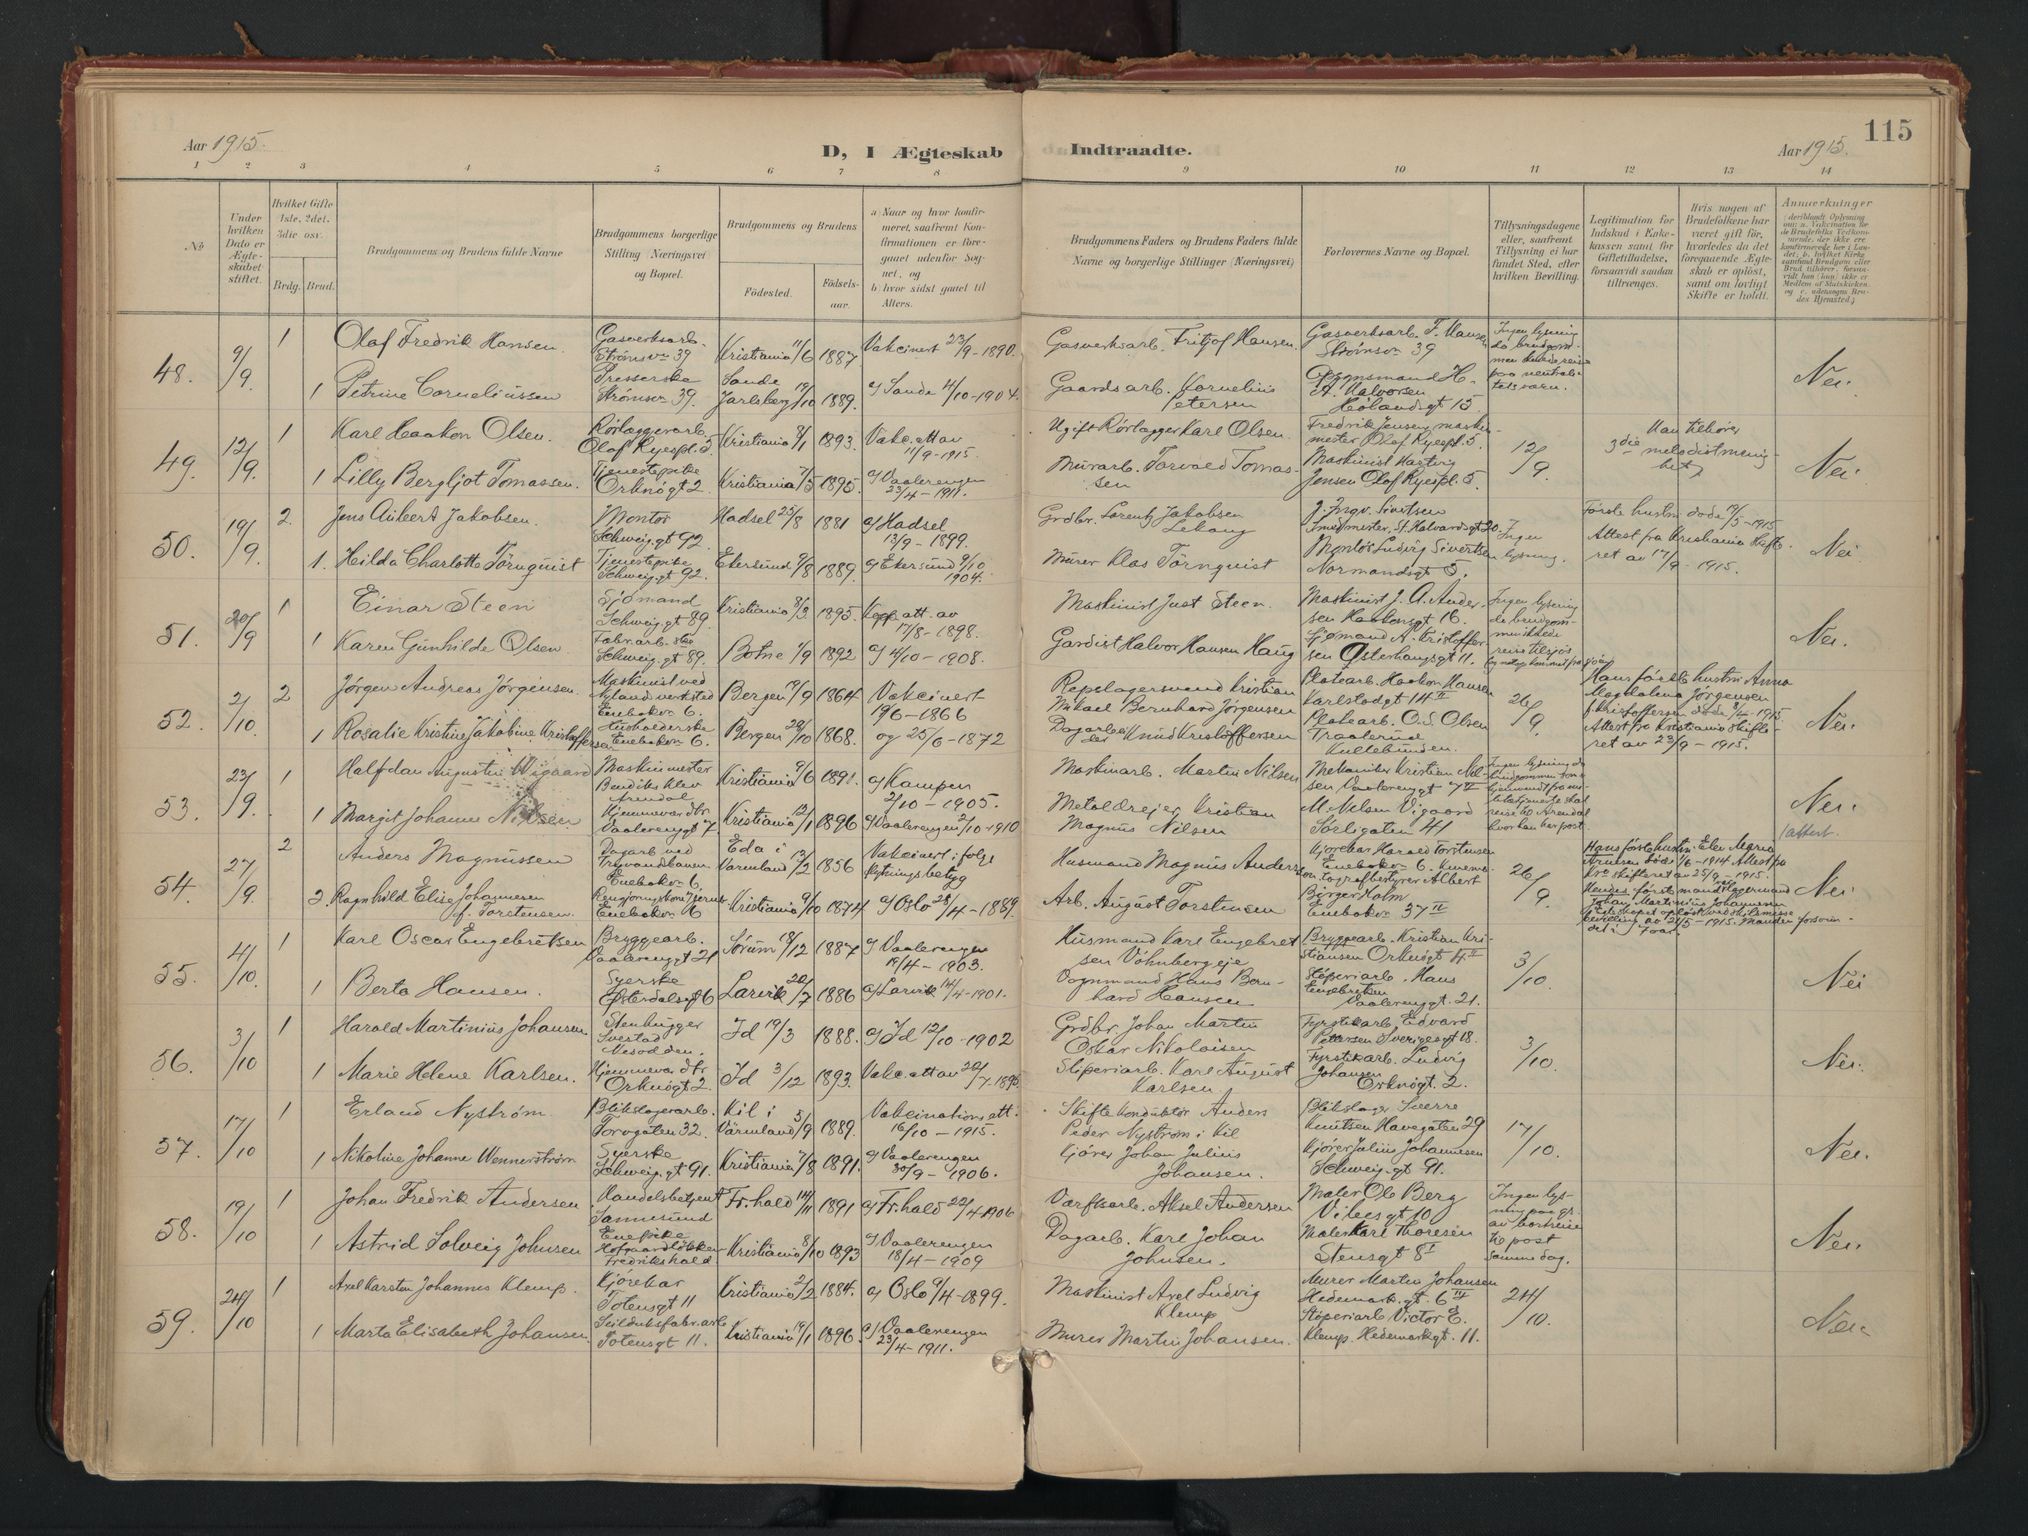 Aar 1915.
D, I Ægteskab Indtraadte.
Aar 1915.
115
1 2 3 4 5 6 7 8 9 10 11 12 13 14
No
Under hvilken Dato er Ægteskabet stiftet.
Hvilket Gifte 1ste, 2det, 3die osv.
Brdg. Brud.
Brudgommens og Brudens fulde Navne
Brudgommens borgerlige Stilling (Næringsvei) og Bopæl.
Brudgommens og Brudens
Fødested.
Fødselsaar.
a) Naar og hvor konfirmeret, saafremt Konfirmationen er foregaaet udenfor Sognet, og
b) hvor sidst gaaet til Alters.
Brudgommens Faders og Brudens Faders fulde Navne og borgerlige Stillinger (Næringsvei)
Forlovernes Navne og Bopæl.
Tillysningsdagene eller, saafremt Tillysning ei har fundet Sted, efter hvilken Bevilling.
Legitimation for Indskud i Enkekassen samt for Giftetilladelse, forsaavidt saadan tiltrænges.
Hvis nogen af Brudefolkene har været gift, hvorledes da det foregaaende Ægteskab er opløst, samt om lovligt Skifte er holdt.
Anmerkninger
48. 9/9 1 Olaf Fredrik Hansen. Gasverksarb. Strømsv 39 Kristiania 11/6 1887 Vakcinert 23/9-1890. Gasverksarb. Fritjof Hansen. Gasverksarb. F. Hansen Strømsv 39 Ingen lysning da brudgommen skulde reise paa neutralitetsvern.
1 Petrine Corneliussen Presserske Strømsv 39. Sande Jarlsberg 19/10 1889. g Sande 4/10-1904. Gaardsarb. Kornelius Petersen H. Halvorsen Hølandsgt 15 Nei.
49. 12/9 1 Karl Haakon Olsen. Rørlæggerarb. Olaf Ryespl. 5 Kristiania 8/1 1893. Vakc. att av 11/9-1915. Ugift Rørlægger Karl Olsen. Fredrik Jensen maskinmester Olaf Ryespl. 5. 12/9 Han tilhører 3die metodistmenighet
1 Lilly Bergljot Tomassen. Tjenestepike Orknøgt 2 Kristiania 7/5 1895. g Vaalerengen 23/4-1911. Murarb. Torvald Tomassen Maskinist Hartvig Jensen Olaf Ryespl. 5. Nei
50. 19/9 2. Jens Aubert Jakobsen. Montør Schweig.gt 92. Hadsel 25/8 1881 g Hadsel 13/9-1899. Grdbr. Lorentz Jakobsen J. Ingv. Sivertsen St. Halvardsgt 20. Ingen lysning. Første hustru døde 19/5-1915 Attest fra Kristiania skifteret av 17/9-1915.
1. Hilda Charlotte Törnquist Tjenestepike Schweig.gt 92. Ekersund 9/8 1889. g Ekersund 9/10 1904. Murer Klas Törnquist Montør Ludvig Sivertsen Normandsgt 5. Nei
51. 20/9 1 Einar Steen Sjømand Schweig.gt 89. Kristiania 8/3 1895. Kopp.att. av 17/8-1898. Maskinist Just Steen. Maskinist J. A. Andersen Haakonsgt 16. Ingen lysning da brudgommen skulde reise tilsjøs
1 Karen Gunhilde Olsen Fabr.arb. Schweig.gt 89. Botne 1/9 1892 g 4/10-1908. Gardist Halvor Hansen Haug Sjømand A. Kristoffersen Østerhaugsgt 11. Nei.
52. 2/10 2 Jørgen Andreas Jørgensen. Maskinist ved Nylands verksted Enebakv 6. Bergen 19/9 1864 Vakcinert 19/6-1866 Repslagersvend Kristian Mikael Bernhard Jørgensen Platearb. Haakon Hansen Karlstadgt 14 II 26/9. Hans første hustru Anna Magdalena Jørgensen f. Kristoffersen døde 8/2-1915 Attest fra Kristiania skifteret av 23/9-1915.
1 Rosalie Kristine Jakobine Kristoffersen Husholderske Enebakv 6. Bergen 28/10 1868. og 25/6-1872 Dagarbeider Knud Kristoffersen Platearb. O. S. Olsen Traaterud Kullebunden. Nei.
53. 23/9. 1 Halfdan Augustin Wigaard Maskinmester Bendiks klev Arendal Kristiania 9/6 1891. g Kampen 2/10-1905. Maskinarb. Martin Nilsen Mekaniker Kristian Nilsen Vaalerengt 7 II
1 Margit Johanne Nilsen Hjemmevær. dtr. Vaalerengt 7 Kristiania 12/1 1896 g Vaalerengen 2/10-1910 Metaldreier Kristian Magnus Nilsen M. Nilsen Vigaard Sørligaten 41 Nei.
54. 27/9. 2 Anders Magnussen Dagarb ved Trævandbanen Enebakv 6 Eda i Värmland 13/2 1856 Vakcinert i følge flytningsbetyg Husmand Magnus Anderson Kjørekar Harald Torstensen Enebakv. 6. Kinematografbestyrer Albert 26/9.
2. Ragnhild Elise Johannesen f. Torstensen. Rengjøringskone Enebakv 6 Kristiania 9/10 1874 g Oslo 28/4-1889. Arb. August Torstensen Birger Holm Enebakv 37 II Nei
55. 4/10. 1 Karl Oscar Engebretsen Bryggearb. Vaalerengt 21 Sørum 18/12 1887 g Vaalerengen 19/4-1903. Husmand Karl Engebretsen Vöhnbergeje Bryggearb. Kristian Kristiansen Orknøgt 4 II 3/10.
1 Berta Hansen. Syerske Østerdalsgt 6 Larvik 20/7 1886 g Larvik 14/4-1901. Vognmand Hans Bernhard Hansen Støperiarb. Hans Engebretsen Vaalerengt. 21. Nei
56. 3/10 1 Harald Martinius Johansen Stenhugger Svestad Nesodden. Id 19/3 1888. g Id 12/10-1902 Grdbr. Johan Martin Oskar Nikolaisen Fyrstikarb. Edvard Pettersen Sverigesgt 18. 3/10.
1 Marie Helene Karlsen. Hjemmevær. dtr Orknøgt 2. Id 3/12 1893. Vakc. att av Støperiarb. Karl August Karlsen. Fyrstikarb. Ludvig Johansen Orknøgt. 2. Nei.
57. 17/10 1 Erland Nyström Blikslagerarb. Torvgaten 32. Kil i Värmland 3/9 1889. Vakcinations att. 16/10-1915. Skiftekonduktör Anders Peder Nyström i Kil Blikslager Sverre Knutsen Havegaten 29 17/10.
1 Nikoline Johanne Wennerstrøm Syerske Schweig.gt 91. Kristiania 7/8 1891. g Vaalerengen 30/9-1906. Kjører Johan Julius Johansen. Kjører Julius Johannesen Schweig.gt 91. Nei.
58. 19/10 1 Johan Fredrik Andersen Handelsbetjent Sannesund Fr.hald 14/11 1891 g Fr.hald 22/4-1906 Værftsarb. Aksel Andersen Maler Ole Berg Vibesgt 10 Ingen lysning paa gr. av bortreise til post samme dag.
1 Astrid Solveig Johnsen Enepike Hofgaardløkken Fredrikshald Kristiania 8/10 1893 g Vaalerengen 18/4-1909 Dagarb. Karl Johan Johnsen. Maler Karl Thoresen Stensgt 8 I Nei.
59. 24/10 1 Axel Karsten Johannes Klemp. Kjørekar Totensgt 11 Kristiania 2/2 1884. g Oslo 9/4-1899. Maskinist Axel Ludvig Klemp Murer Martin Johansen Hedemark.gt. 6 IV 24/10.
1 Marta Elisabeth Johansen Totensgt 11. Kristiania 19/1 1896. g Vaalerengen 23/4-1911. Murer Martin Johansen. Støperiarb. Victor E. Klemp. Hedemarkgt. 11. Nei.